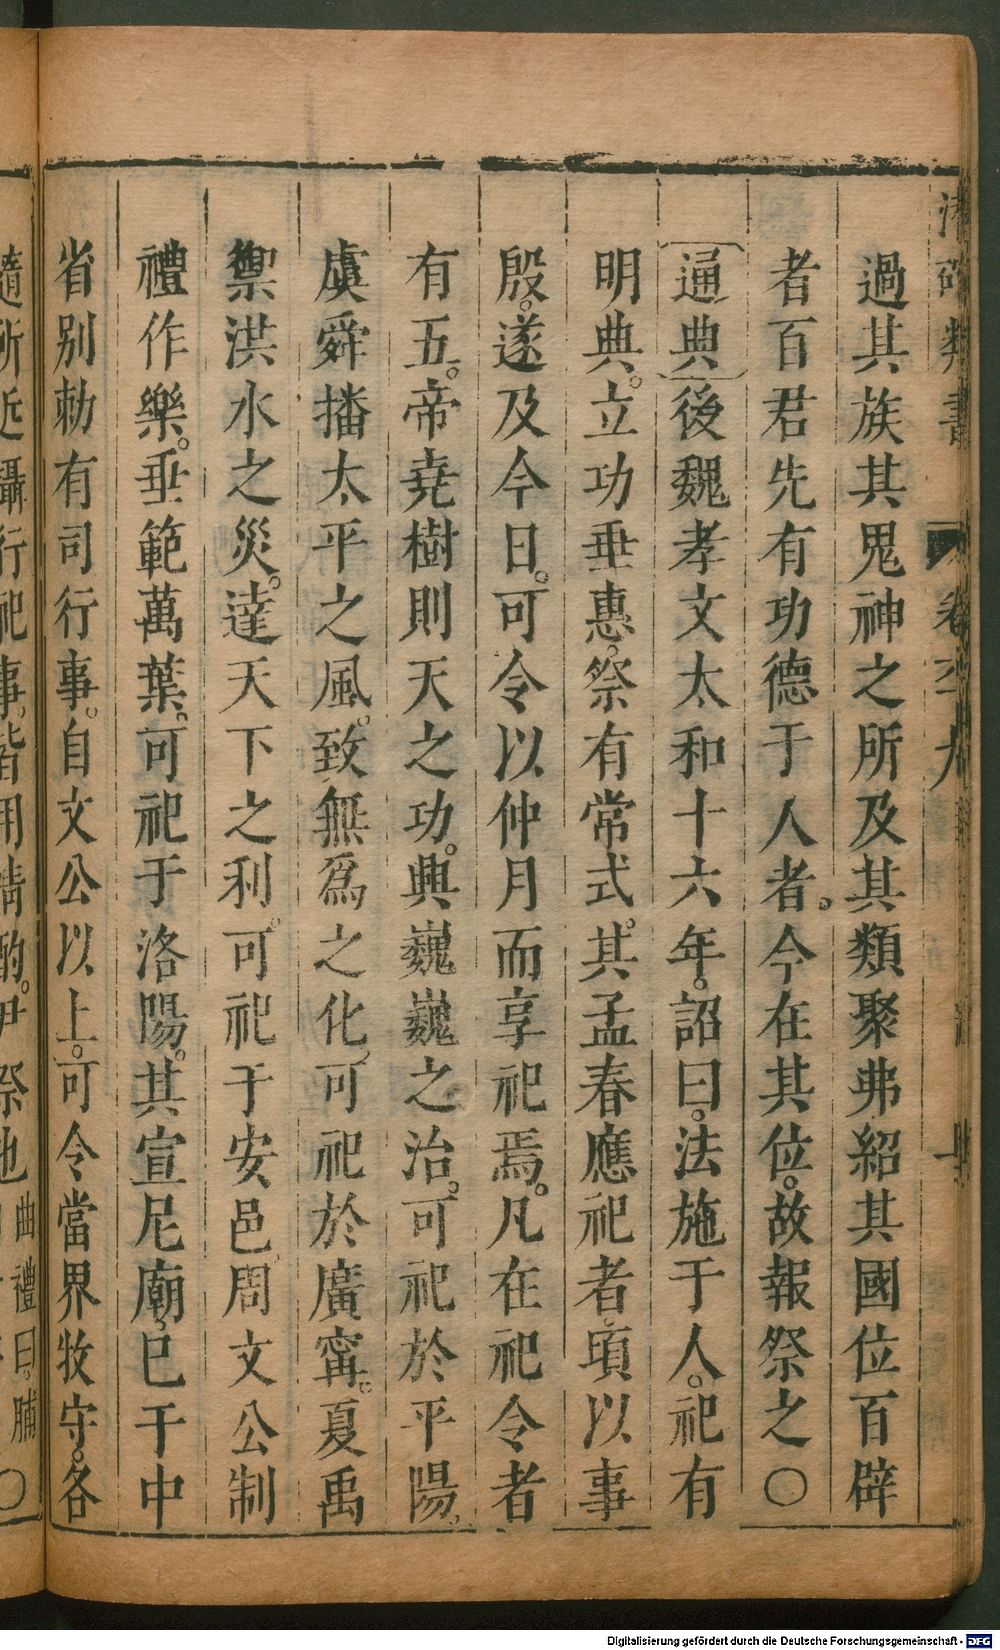 過其族其鬼神之所及其類聚弗紹其國位百辟
者百君先有功德于人者。今在其位。故報祭之〇
通典後魏孝文太和十六年。詔曰。法施于人。祀有
明典。立功垂惠。祭有常式。其孟春應祀者。頃以事
殷。遂及今日。可令以仲月而享祀焉。凡在祀令者
有五。帝堯樹則天之功。興巍巍之治。可祀於平陽。
虞舜播太平之風。致無爲之化。可祀於廣甯。夏禹
禦洪水之災。達天下之利。可祀于安邑。周文公制
禮作樂。垂範萬葉。可祀于洛陽。其宣尼廟。已于中
省別勅有司行事。自文公以上。可令當界牧守。各
隨所近攝行祀事。皆用淸酌。尹祭也
曲禮曰。脯
〇
Digitalisierung gefördert durch die Deutsche Forschungsgemeinschaft - DFG